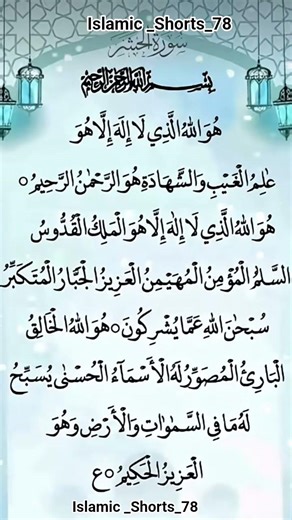 Islamic _Shorts_78
سورة الحشر
بِسْمِ اللهِ الرَّحْمٰنِ الرَّحِيْمِ
هُوَ اللهُ الَّذِي لَا إِلٰهَ إِلَّا هُوَ
عٰلِمُ الْغَيْبِ وَالشَّهَادَةِ هُوَ الرَّحْمٰنُ الرَّحِيْمُ ○
هُوَ اللهُ الَّذِي لَا إِلٰهَ إِلَّا هُوَ الْمَلِكُ الْقُدُّوسُ
السَّلٰمُ الْمُؤْمِنُ الْمُهَيْمِنُ الْعَزِيْزُ الْجَبَّارُ الْمُتَكَبِّرُ
سُبْحٰنَ اللهِ عَمَّا يُشْرِكُونَ ○ هُوَ اللهُ الْخَالِقُ
الْبَارِئُ الْمُصَوِّرُ لَهُ الْأَسْمَآءُ الْحُسْنٰى يُسَبِّحُ
لَهُ مَا فِي السَّمٰوٰتِ وَالْأَرْضِ وَهُوَ
الْعَزِيْزُ الْحَكِيْمُ ○ ع
Islamic _Shorts_78